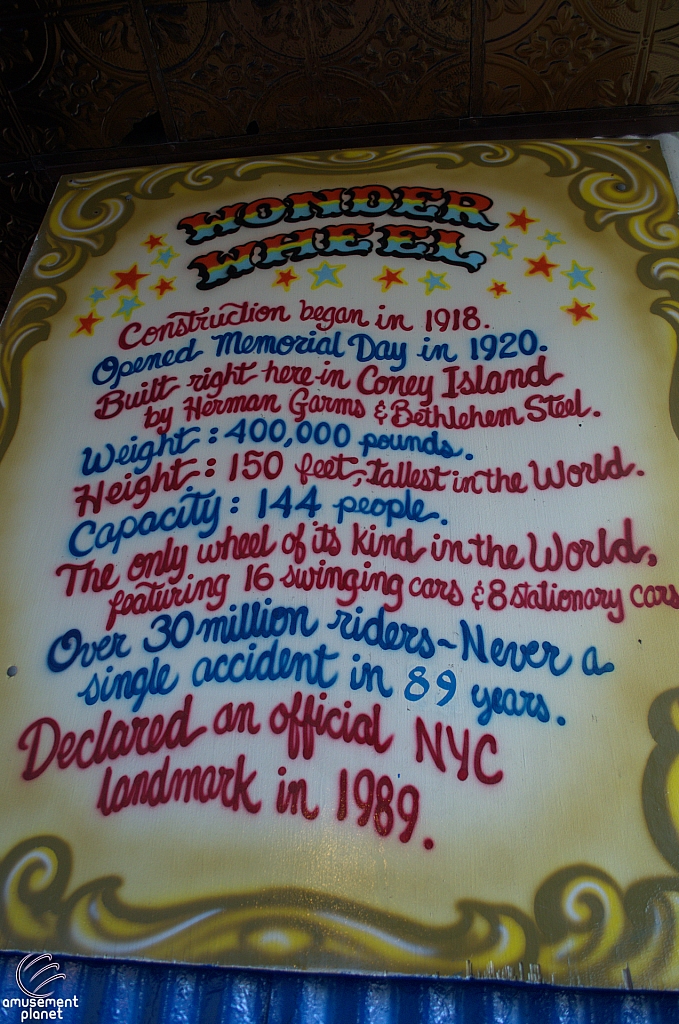 WONDER
WHEEL
Construction began in 1918.
Opened Memorial Day in 1920.
Built right here in Coney Island
by Herman Garms & Bethlehem Steel.
Weight: 400,000 pounds.
Height: 150 feet, tallest in the World.
Capacity: 144 people.
The only wheel of its kind in the World,
featuring 16 swinging cars & 8 stationary cars
Over 30 million riders~Never a
single accident in 89 years.
Declared an official NYC
landmark in 1989.
amusement
planet